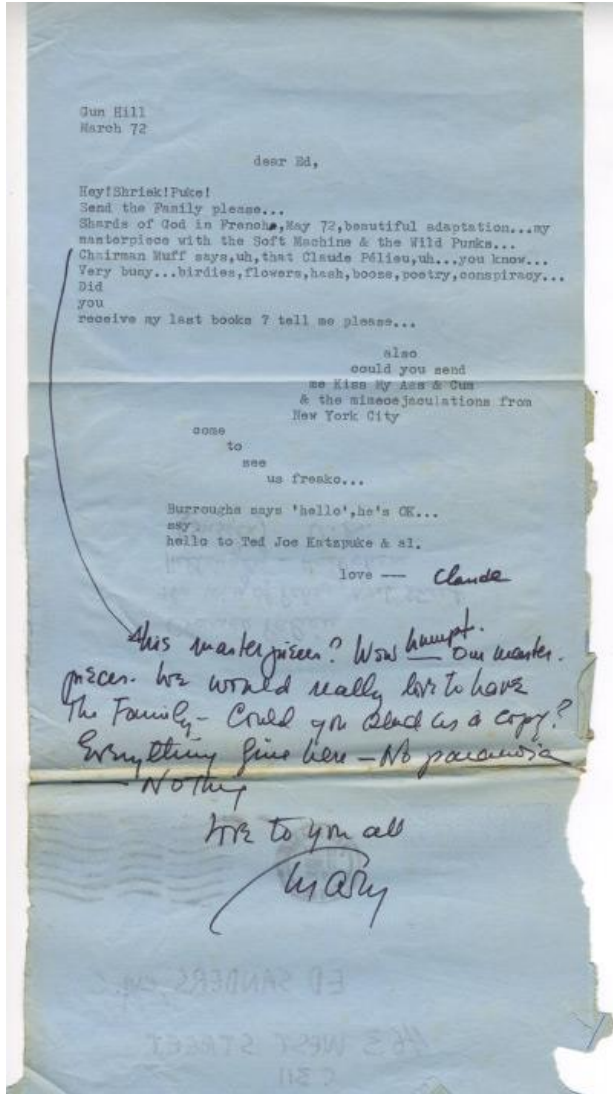 Gun Hill
March 72
dear Ed,
Hey!Shriek!Puke!
Send the Family please...
Shards of God in French,May 72,beautiful adaptation...my
masterpiece with the Soft Machine & the Wild Punks...
Chairman Muff says,uh,that Claude Pélieu,uh...you know...
Very busy...birdies,flowers,hash,booze,poetry,conspiracy...
Did
you
receive my last books 7 tell me please...
also
could you send
me Kiss My Ass & Cum
& the mimeoejaculations from
New York City
come
to
see
us freako...
Burroughs says 'hello',he's OK...
say
hello to Ted Joe Katzpuke & al.
love --- Claude
this masterpieces? Wow humpt. Our master.
pieces. We would really love to have
The Family - Could you send us a copy?
Everything fine here - No paranoia
- Nothing
love to you all
Mary
ED SANDERS
463 WEST STREET
C 311